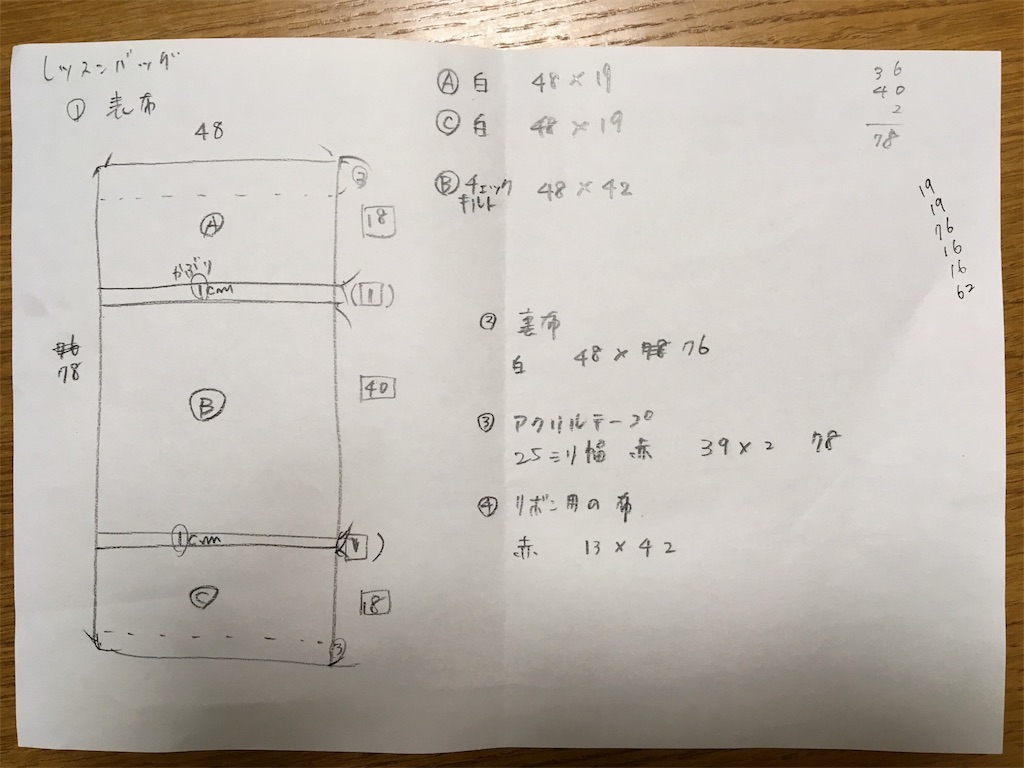 レッスンバッグ
① 表布
48
Ⓐ
18
かぶり
①cm
(1)
78
Ⓑ
40
①cm
Ⓒ
18
Ⓐ 白 48×19
Ⓒ 白 48×19
Ⓑ チェックキルト 48×42
② 裏布
白 48× 76
③ アクリルテープ
25ミリ幅 赤 39×2 78
④ リボン用の布
赤 13×42
36
40
2
78
19
19
76
16
16
62